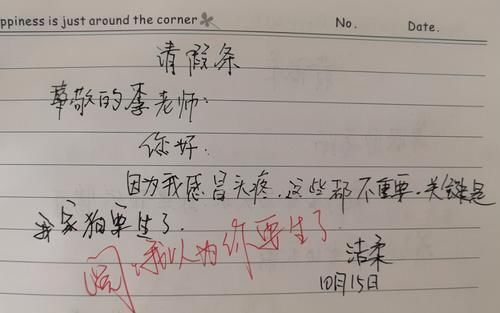 ppiness is just around the corner No. Date.
请假条
尊敬的李老师:
你好.
因为我感冒头疼.这些都不重要.关键是
我家狗要生了.
我以为你要生了
洁柔
10月15日